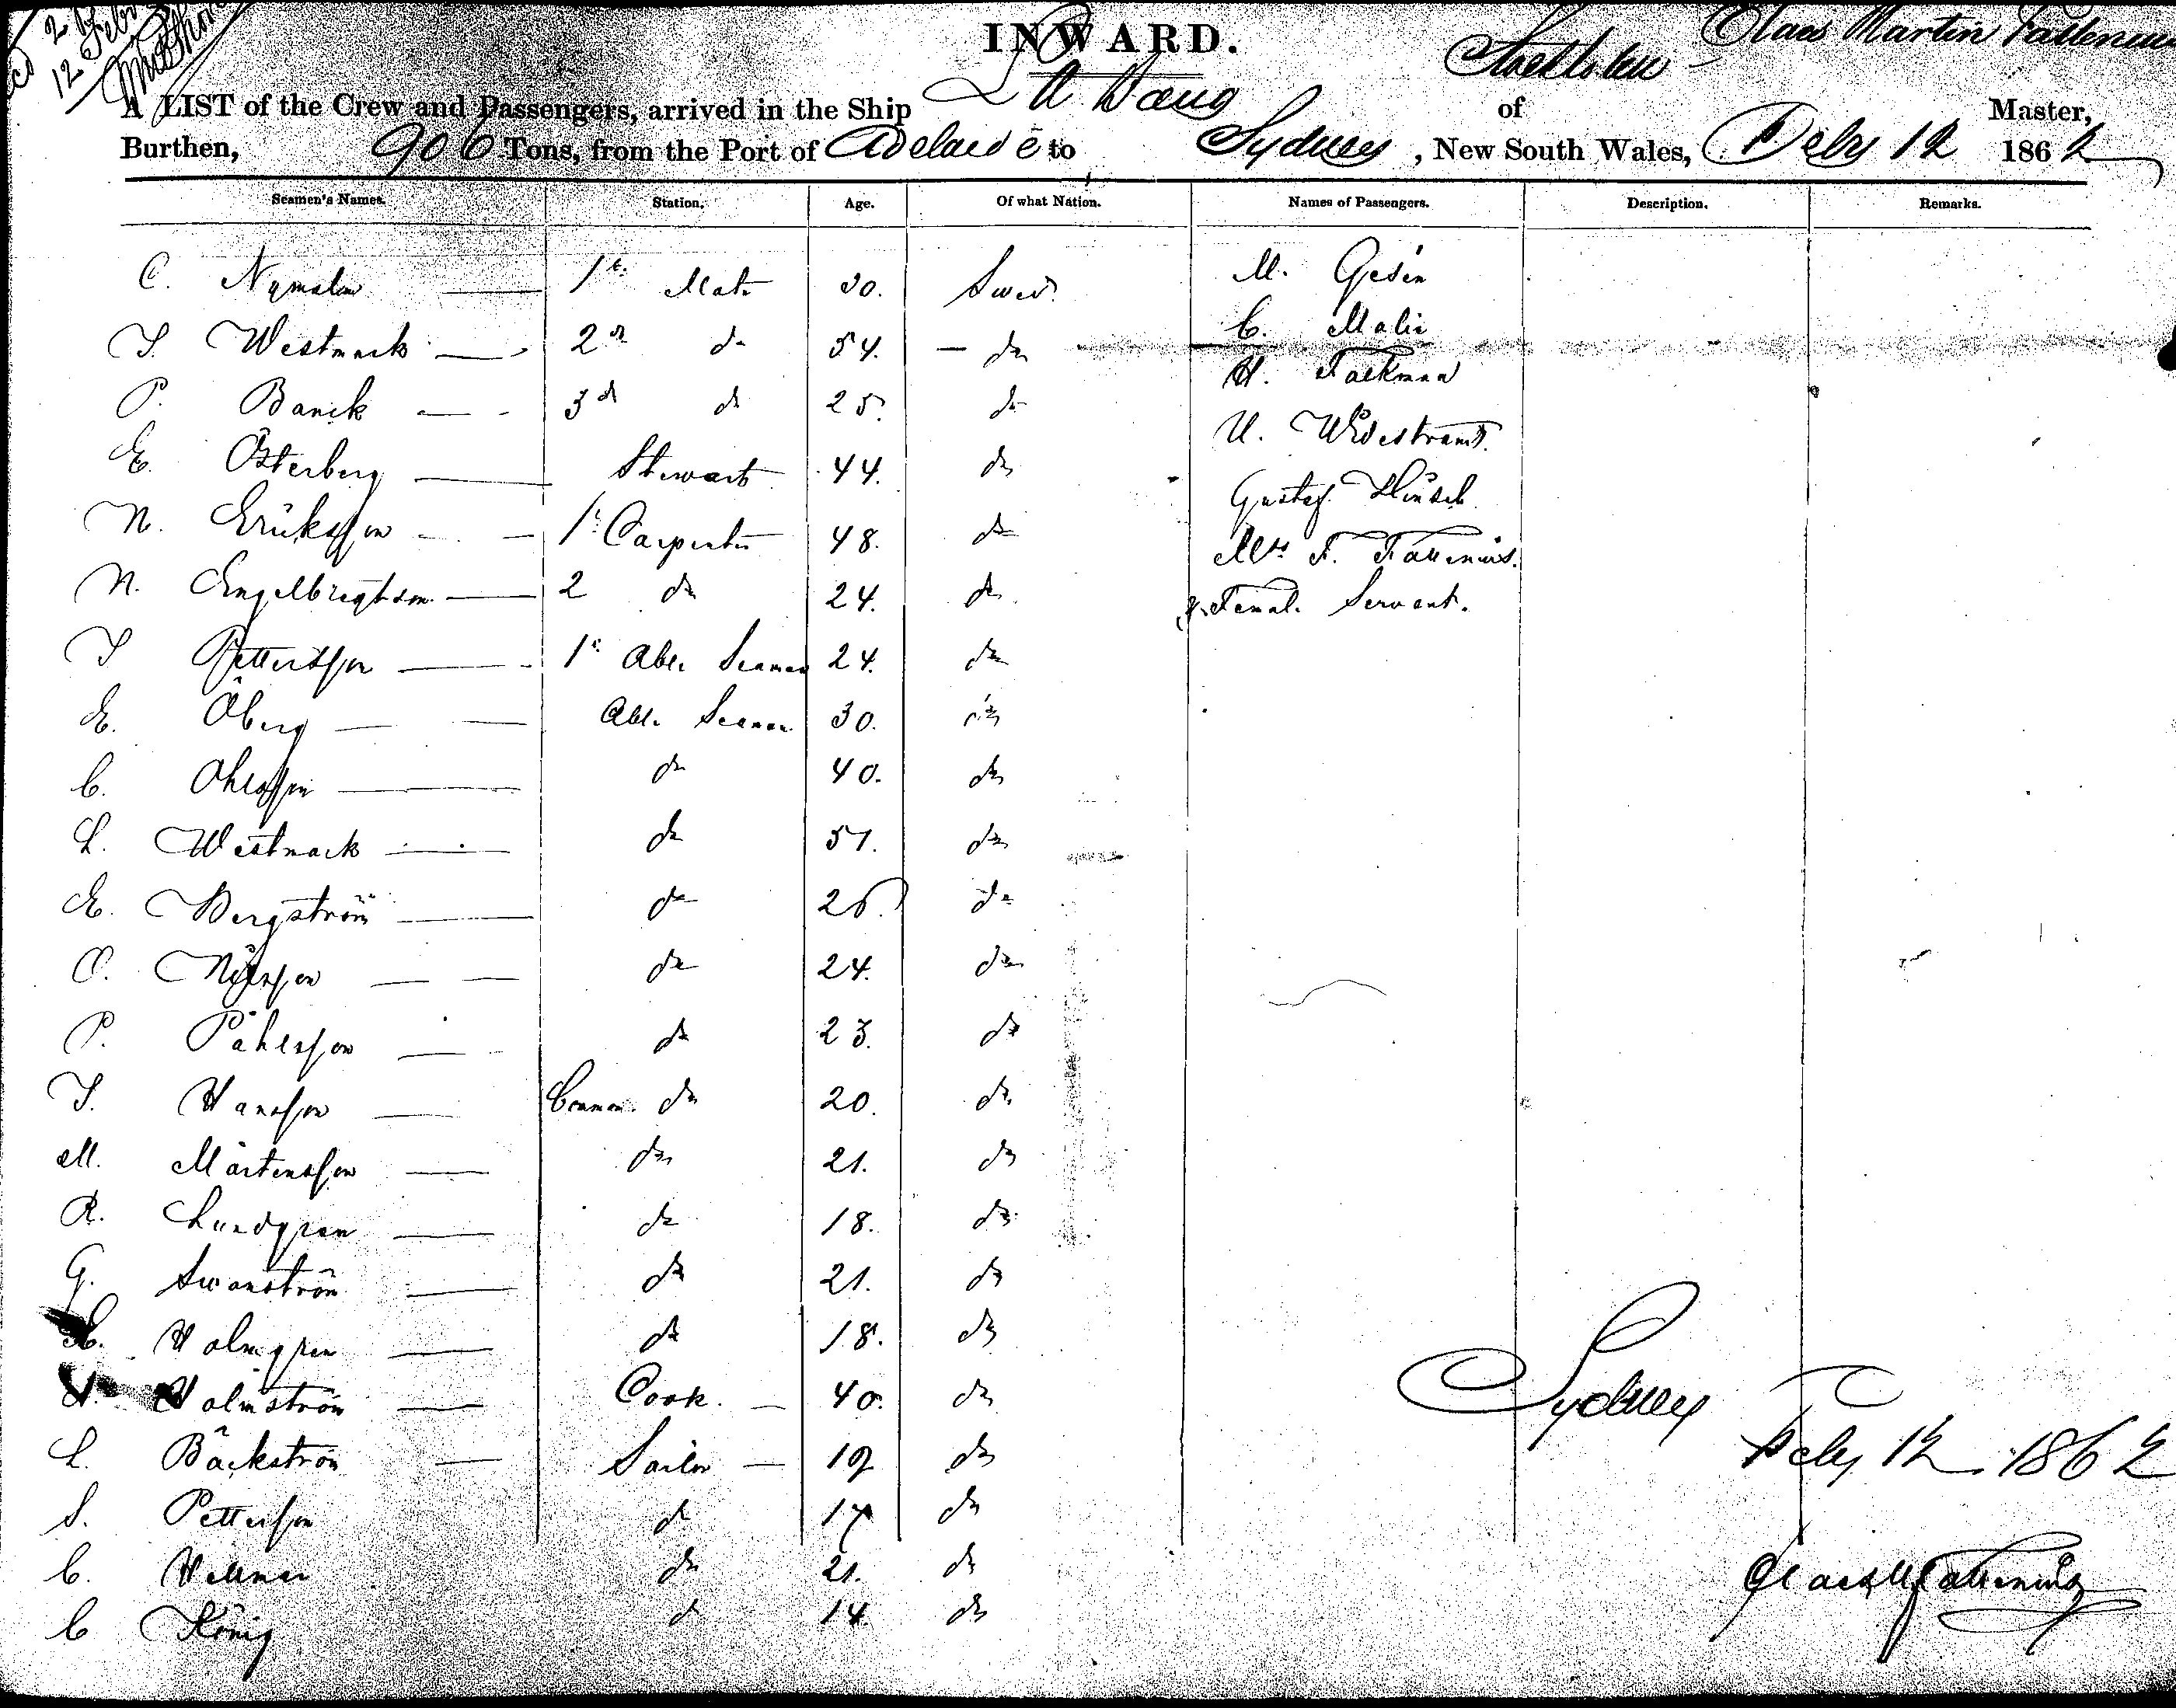 INWARD.
12 Feb
Stockholm Claas Martin Fallenius
A LIST of the Crew and Passengers, arrived in the Ship L A Bang of Master,
Burthen, 906 Tons, from the Port of Adelaide to Sydney, New South Wales, Feby 12 1862
Seamen's Names. Station. Age. Of what Nation. Names of Passengers. Description. Remarks.
C. 1st Mate 30. Swed. M. Gesén
J. Westmark 2d do 54. do C. Malis
P. Banck 3d do 25. do H. Falkman
E. Österberg Stewart 44. do U. Widestrand.
N. Eriksson 1t Carpenter 48. do Gustaf
N. Engelbregtson 2 do 24. do Mrs F. Fallenius.
J Pettersson 1t Able Seaman 24. do & Female Servant.
E. Öberg Able Seaman 30. do
C. Ohlsson do 40. do
L. Westmark do 51. do
E. Bergström do 26. do
O. Nilsson do 24. do
P. Påhlsson do 23. do
J. Hansson Common do 20. do
M. Mårtensson do 21. do
R. Lundgren do 18. do
G. Swanström do 21. do
Holmgren do 18. do
H. Holmström Cook. 40. do
L. Bäckström Sailor 19 do
S. Petterson do 17 do
C. Hellman do 21. do
C König d 14. do
Sydney
Feby 12 1862
Claes M Fallenius